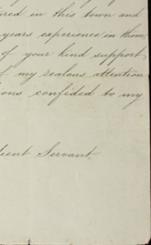 ired in this town and
years experience in them,
f your kind support
f my zealous attention
ons confided to my
dient Servant,